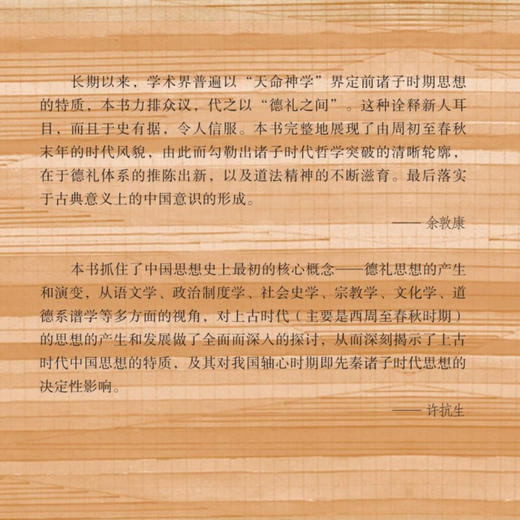 长期以来，学术界普遍以“天命神学”界定前诸子时期思想
的特质，本书力排众议，代之以“德礼之间”。这种诠释新人耳
目，而且于史有据，令人信服。本书完整地展现了由周初至春秋
末年的时代风貌，由此而勾勒出诸子时代哲学突破的清晰轮廓，
在于德礼体系的推陈出新，以及道法精神的不断滋育。最后落实
于古典意义上的中国意识的形成。
——余敦康
本书抓住了中国思想史上最初的核心概念——德礼思想的产生
和演变，从语文学、政治制度学、社会史学、宗教学、文化学、道
德系谱学等多方面的视角，对上古时代（主要是西周至春秋时期）
的思想的产生和发展做了全面而深入的探讨，从而深刻揭示了上古
时代中国思想的特质，及其对我国轴心时期即先秦诸子时代思想的
决定性影响。
——许抗生